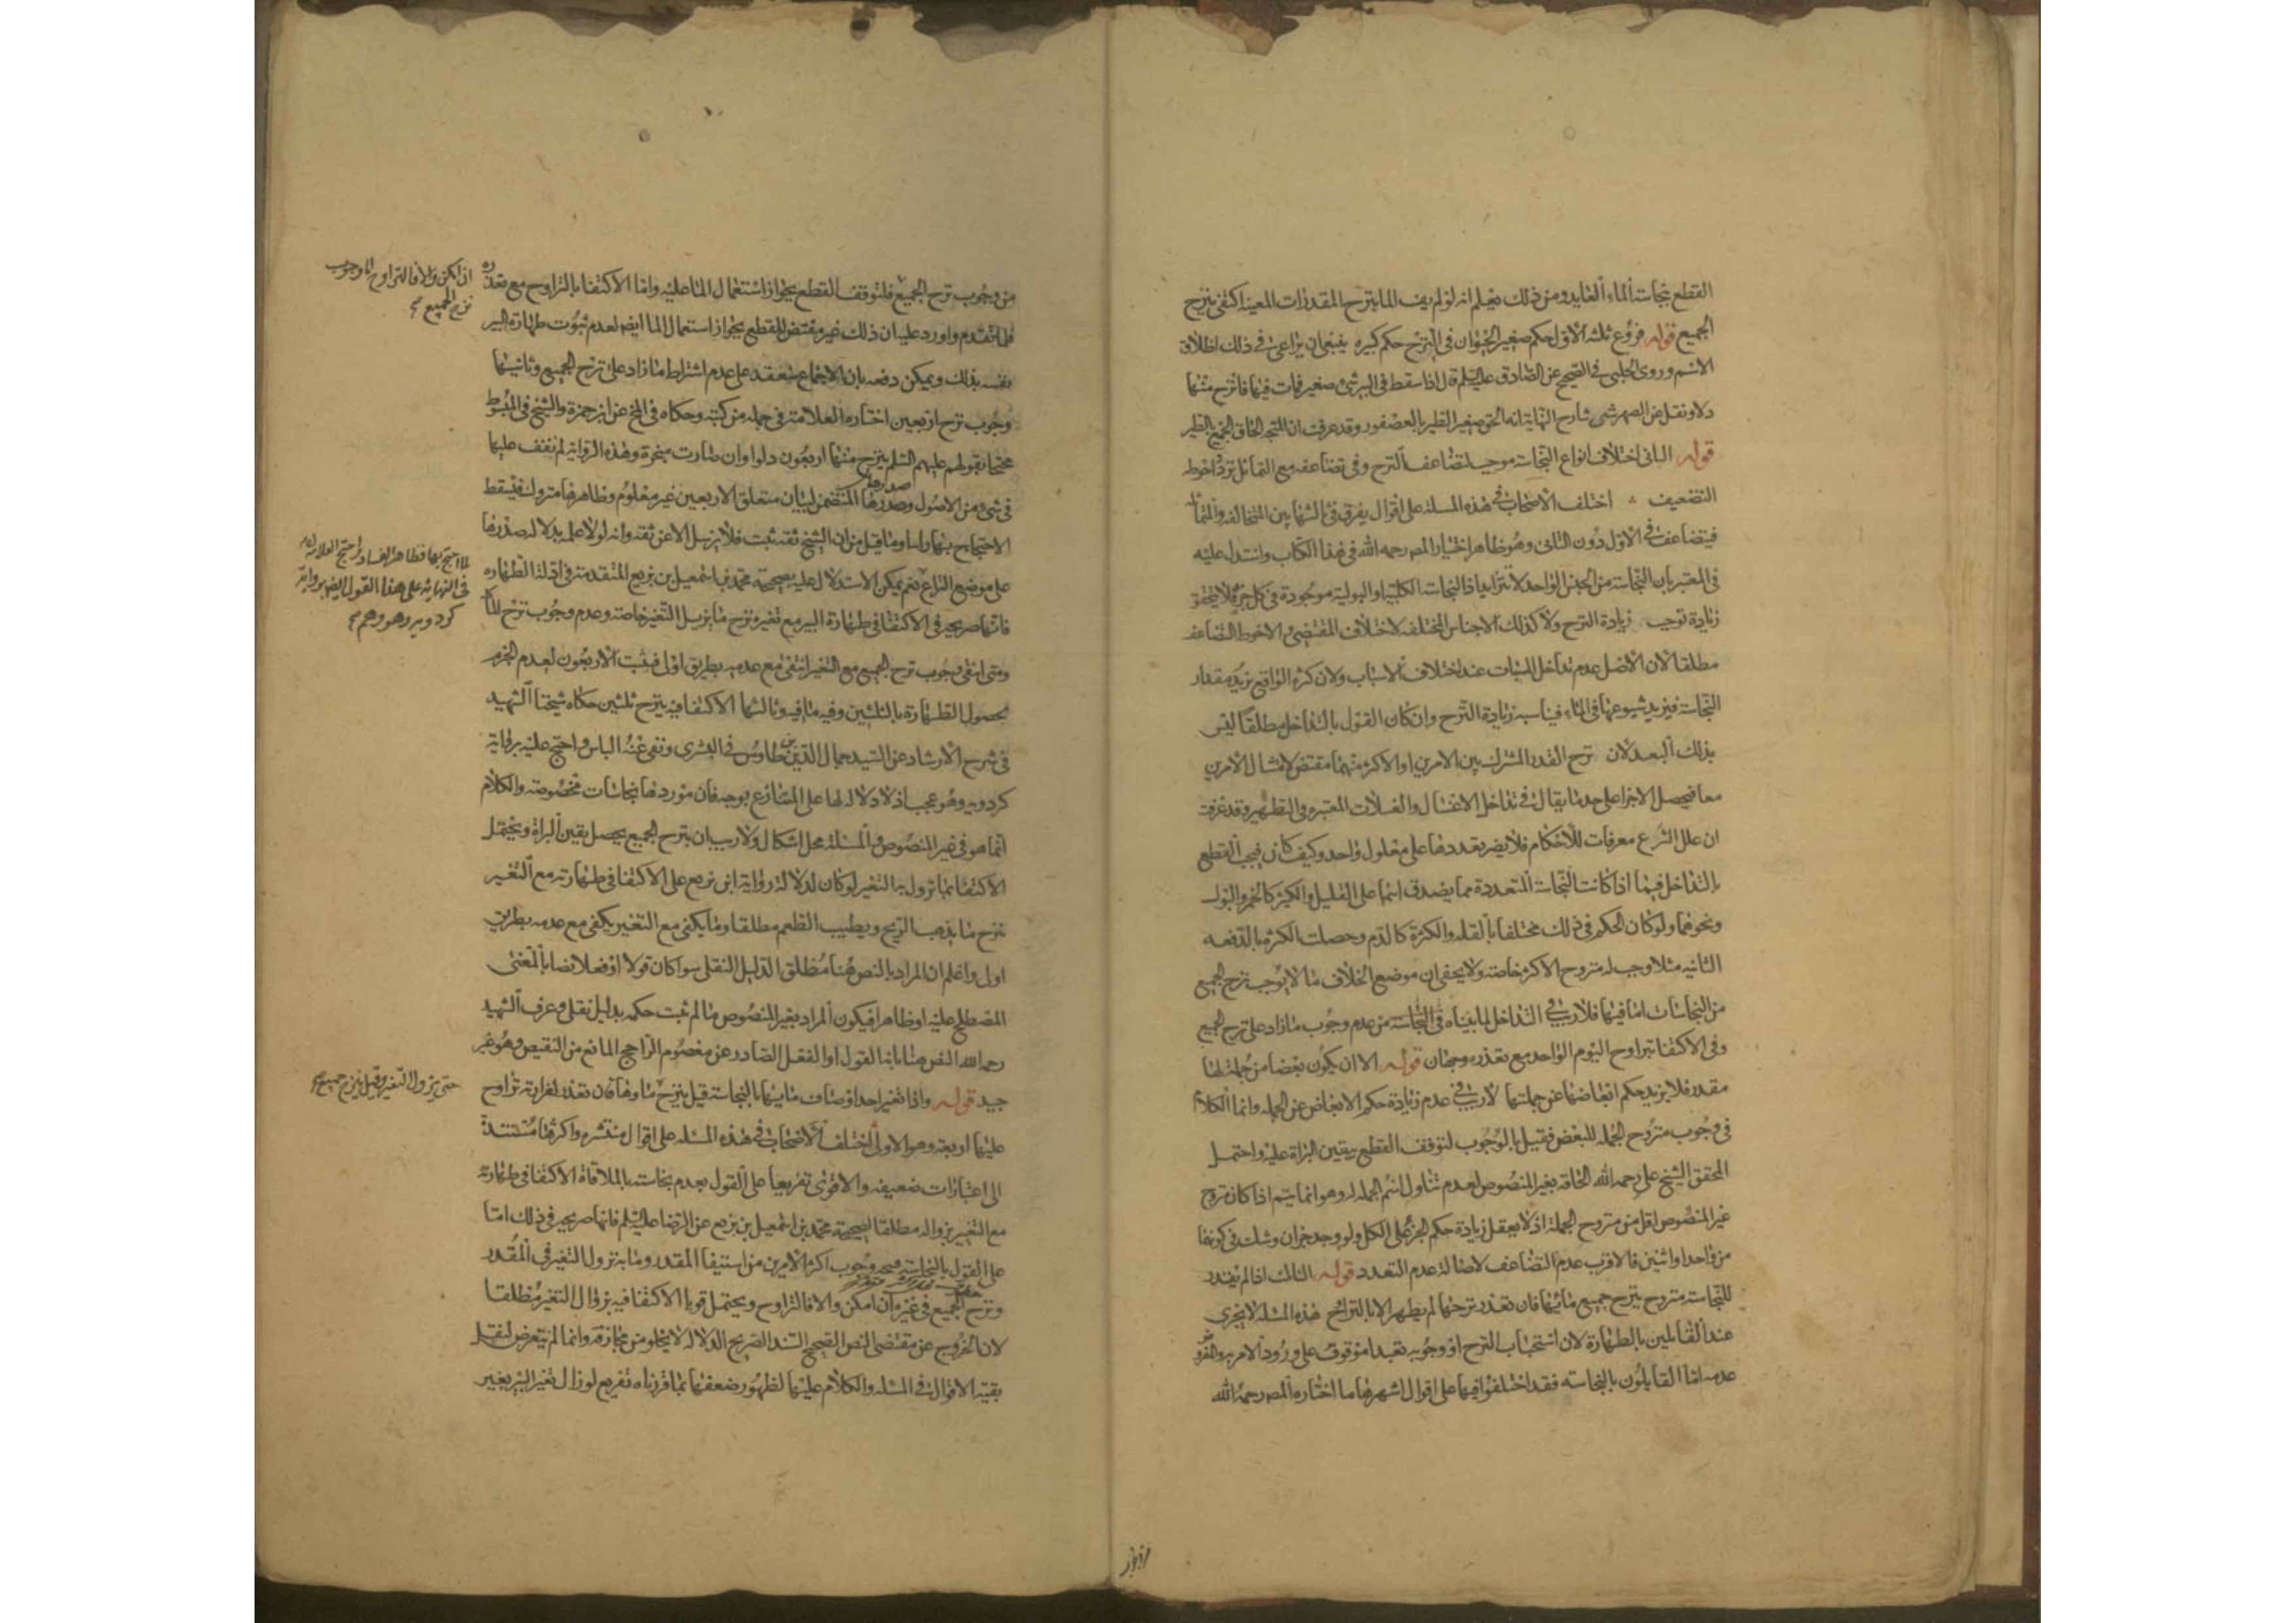 القطع بنجاسة الماء العايد ومن ذلك يعلم انه لو لم يف الما بنزح المقدرات المعينة اكتفى بنزح
الجميع قوله فروع ثلثة الاول حكم صغير الحيوان فى النزح حكم كبيره ينبغى ان يراعى فى ذلك اطلاق
الاسم وروى الحلبى فى الصحيح عن الصادق عليه السلم قال اذا سقط فى البير شئ صغير فمات فيها فانزح منها
دلاء ونقل عن الصهرشتى شارح النهاية انه الحق صغير الطير بالعصفور وقد عرفت ان المتجه الحاق الجميع بالطير
قوله الثانى اختلاف انواع النجاسة موجب لتضاعف النزح وفى تضاعفه مع التماثل تردد احوطه
التضعيف اختلف الاصحاب فى هذه المسئلة على اقوال يفرق فى ثالثها بين المتخالفه والمتماثله
فيتضاعف فى الاول دون الثانى وهو ظاهر اختيار المصر رحمه الله فى هذا الكتاب واستدل عليه
فى المعتبر بان النجاسة من الجنس الواحد لا تتزايد اذ النجاسة الكلبية او البولية موجودة فى كل جزء فلا يتحقق
زيادة توجب زيادة النزح ولا كذلك الاجناس المختلفه لاختلاف المقتضى والاحوط التضاعف
مطلقا لان الاصل عدم تداخل المسببات عند اختلاف الاسباب ولان كثرة الواقع يزيد مقدار
النجاسة فيزيد شيوعها فى الماء فيناسبه زيادة النزح وان كان القول بالتداخل مطلقا ليس
بذلك البعد لان نزح القدر المشترك بين الامرين او الاكثر منهما مقتض لامتثال الامرين
معا فيحصل الاجزا على حد ما يقال فى تداخل الاغسال والغسلات المعتبره فى التطهير وقد عرفت
ان علل الشرع معرفات للاحكام فلا يضر تعددها على معلول واحد وكيف كان فيجب القطع
بالتداخل فيما اذا كانت النجاسة المتعددة مما يصدق اسمها على القليل والكثير كالخمر والبول
ونحوهما ولو كان الحكم فى ذلك مختلفا بالقله والكثرة كالدم وحصلت الكثره بالدفعه
الثانيه مثلا وجب له منزوح الاكثر خاصة ولا يخفى ان موضع الخلاف ما لا يوجب نزح الجميع
من النجاسات اما فيها فلا ريب فى التداخل لما بيناه فى النجاسة من عدم وجوب ما زاد على نزح الجميع
وفى الاكتفا بتراوح اليوم الواحد مع تعذره وجهان قوله الا ان يكون بعضا من جملة لها
مقدر فلا يزيد حكم ابعاضها عن جملتها لا ريب فى عدم زيادة حكم الابعاض عن الجمله وانما الكلام
فى وجوب منزوح الجمله للبعض فقيل بالوجوب لتوقف القطع بيقين البراة عليه واحتمل
المحقق الشيخ على رحمه الله الحاقه بغير المنصوص لعدم تناول اسم الجمله له وهو انما يتم اذا كان منزوح
غير المنصوص اقل من منزوح الجملة اذ لا يعقل زيادة حكم الجزء على الكل ولو وجد جزان وشك فى كونهما
من واحد او اثنين فالاقرب عدم التضاعف لاصالة عدم التعدد قوله الثالث اذا لم يقدر
للنجاسة منزوح ينزح جميع مائها فان تعذر نزحها لم يطهر الا بالتراوح هذه المسئله لا يجرى
عند القايلين بالطهارة لان استحباب النزح او وجوبه تعبدا موقوف على ورود الامر به والفرض
عدمه اما القايلون بالنجاسه فقد اختلفوا فيها على اقوال اشهرها ما اختاره المصر رحمه الله
من وجوب نزح الجميع فلتوقف القطع بجواز استعمال الما عليه واما الاكتفا بالتراوح مع تعذره
فلما تقدم واورد عليه ان ذلك غير مقتض للقطع بجواز استعمال الما ايضا لعدم ثبوت طهارة البير
نفسه بذلك ويمكن دفعه بان الاجماع منعقد على عدم اشتراط ما زاد على نزح الجميع وثانيها
وجوب نزح اربعين اختاره العلامة فى جمله من كتبه وحكاه فى المخ عن ابن حمزة والشيخ فى المبسوط
محتجا بقولهم عليهم السلم ينزح منها اربعون دلوا وان صارت مبخرة وهذه الرواية لم نقف عليها
فى شئ من الاصول وصدرها المتضمن لبيان متعلق الاربعين غير معلوم وظاهرها متروك فيسقط
الاحتجاج بها راسا وما قيل من ان الشيخ ثقة ثبت فلا يرسل الا عن ثقه وانه لولا علمه بدلالة صدرها
على موضع النزاع نعم يمكن الاستدلال عليه بصحيحة محمد بن اسمعيل بن بزيع المتقدمة فى ادلة الطهاره
فانها صريحه فى الاكتفا فى طهارة البير مع تغيره بنزح ما يزيل التغير خاصة وعدم وجوب نزح الماء
ومتى انتفى وجوب نزح الجميع مع التغير انتفى مع عدمه بطريق اولى فيثبت الاربعون لعدم الجزم
بحصول الطهارة بالثلثين وفيه ما فيه وثالثها الاكتفا فيه بنزح ثلثين حكاه شيخنا الشهيد
فى شرح الارشاد عن السيد جمال الدين بن طاوس فى البشرى ونفى عنه الباس واحتج عليه برواية
كردويه وهو عجيب اذ لا دلالة لها على المتنازع بوجه فان موردها نجاسات مخصوصة والكلام
انما هو فى غير المنصوص والمسئلة محل اشكال ولا ريب ان بنزح الجميع يحصل يقين البراة ويحتمل
الاكتفا بما يزول به التغير لو كان لدلالة رواية ابن بزيع على الاكتفا فى طهارته مع التغير
بنزح ما يذهب الريح ويطيب الطعم مطلقا وما يكفى مع التغير يكفى مع عدمه بطريق
اولى واعلم ان المراد بالنص هنا مطلق الدليل النقلى سواء كان قولا او فعلا نصا بالمعنى
المصطلح عليه او ظاهرا فيكون المراد بغير المنصوص ما لم يثبت حكمه بدليل نقلى وعرف الشهيد
رحمه الله النص هنا بانه القول او الفعل الصادر عن معصوم الراجح المانع من النقيض وهو غير
جيد قوله واذا تغير احد اوصاف مائها بالنجاسة قيل ينزح ماوها فان تعذر لغزارته تراوح
عليها اربعة وهو الاولى اختلف الاصحاب فى هذه المسئله على اقوال منتشره واكثرها مستندة
الى اعتبارات ضعيفه والاقوى تفريعا على القول بعدم نجاسته بالملاقاة الاكتفا فى طهارته
مع التغيير بزواله مطلقا لصحيحة محمد بن اسمعيل بن بزيع عن الرضا عليه السلم فانها صريحه فى ذلك اما
على القول بالنجاسة فيتجه وجوب اكثر الامرين من استيفا المقدر وما به يزول التغير فى المقدر
ونزح الجميع فى غيره ان امكن والا فالتراوح ويحتمل قويا الاكتفا فيه بزوال التغير مطلقا
لان الخروج عن مقتضى النص الصحيح السند الصريح الدلاله لا يخلو من مجازفة وانما لم يتعرض لنقل
بقية الاقوال فى المسئله والكلام عليها لظهور ضعفها بما قررناه تفريع لو زال تغير البير بغير
ان امكن والا فالتراوح اما وجوب
نزح الجميع صح
لما احتج بها فظاهر الفساد واحتج العلامة
فى النهاية على هذا القول ايضا برواية
كردويه وهو وهم صح
حتى يزول التغير وقيل بنزح جميع صح